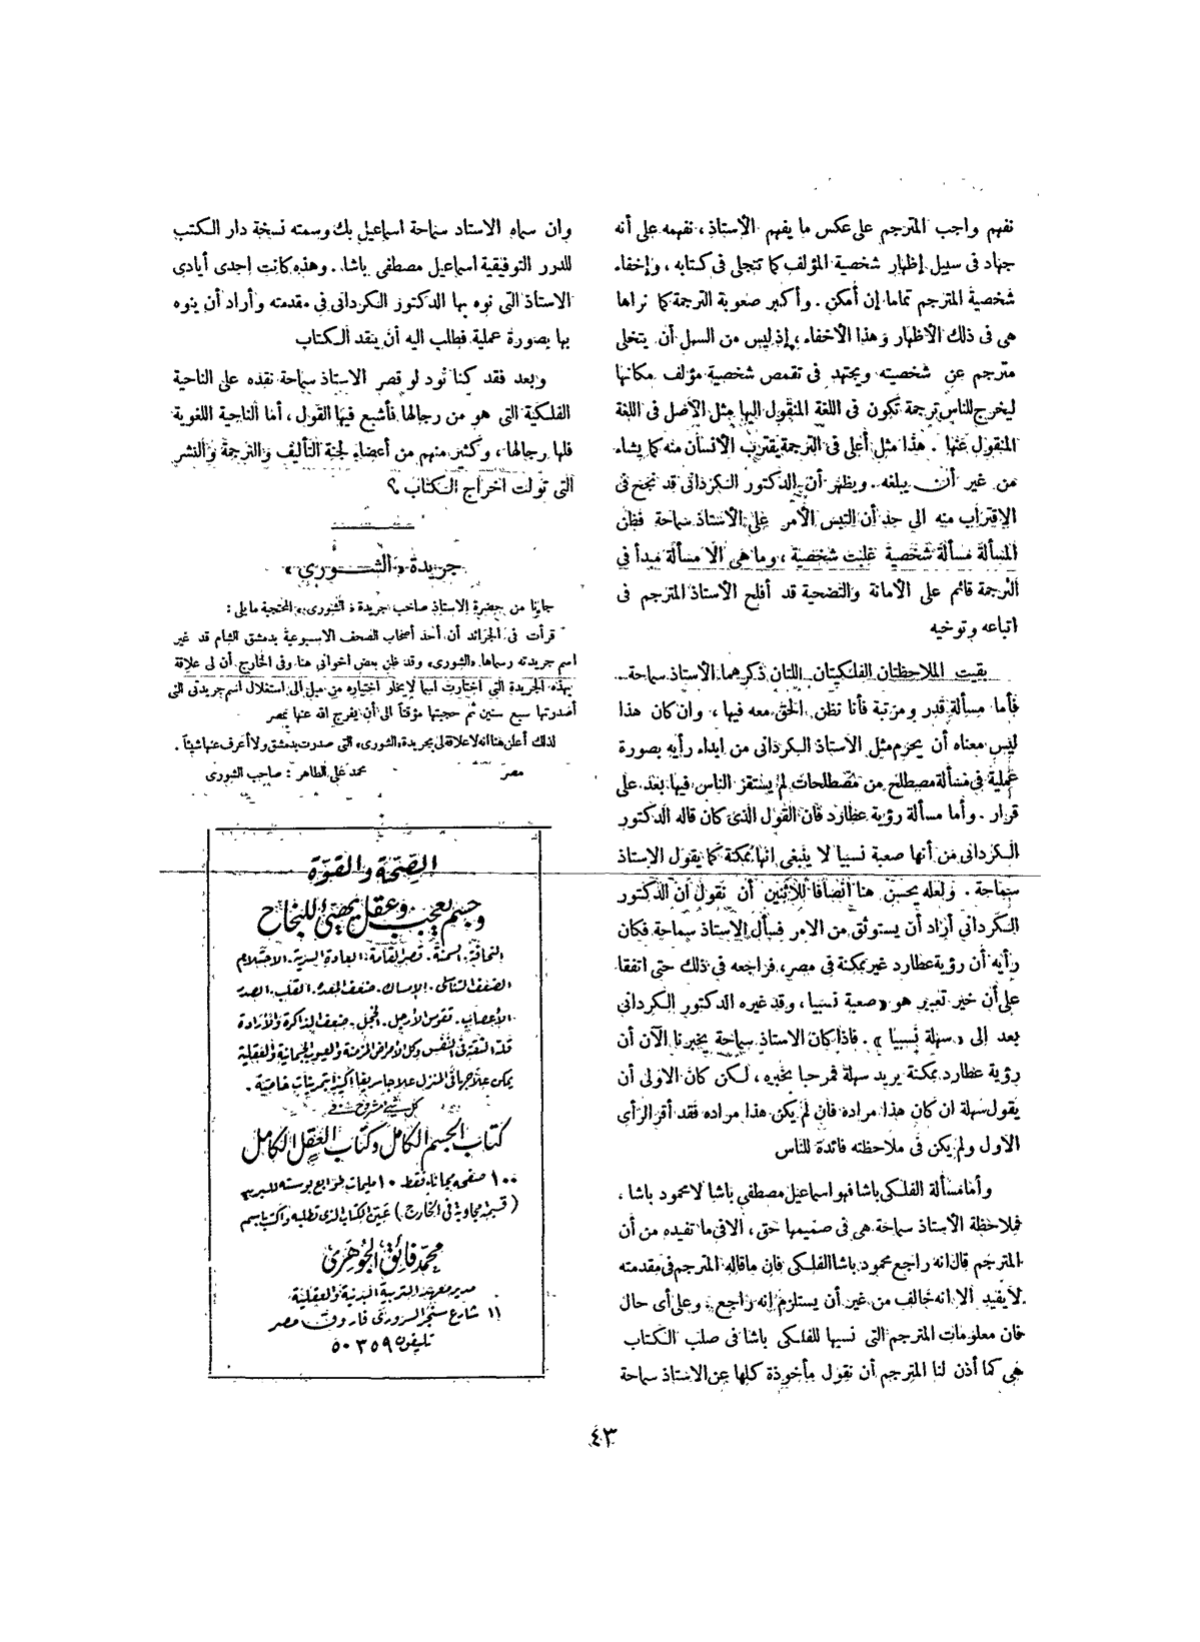 نفهم واجب المترجم على عكس ما يفهم الأستاذ، نفهمه على أنه
جهاد فى سبيل إظهار شخصية المؤلف كما تتجلى فى كتابه، وإخفاء
شخصية المترجم تماما إن أمكن. وأكبر صعوبة الترجمة كما نراها
هى فى ذلك الأظهار وهذا الأخفاء، إذ ليس من السهل أن يتخلى
مترجم عن شخصيته ويجتهد فى تقمص شخصية مؤلف مكانها
ليخرج للناس ترجمة تكون فى اللغة المنقول اليها مثل الأصل فى اللغة
المنقول عنها. هذا مثل أعلى فى الترجمة يقترب الأنسان منه كما يشاء
من غير أن يبلغه. ويظهر أن الدكتور الكردانى قد نجح فى
الإقتراب منه الى حد أن التبس الأمر على الأستاذ سماحة فظن
المسألة مسألة شخصية غلبت شخصية، وما هى الا مسألة مبدأ فى
الترجمة قائم على الأمانة والتضحية قد أفلح الأستاذ المترجم فى
اتباعه وتوخيه
بقيت الملاحظتان الفلكيتان اللتان ذكرهما الأستاذ سماحة.
فأما مسألة قدر ومرتبة فأنا نظن الحق معه فيها، وان كان هذا
ليس معناه أن يحرم مثل الأستاذ الكردانى من ابداء رأيه بصورة
عملية فى مسألة مصطلح من مصطلحات لم يستقر الناس فيها بعد على
قرار. وأما مسألة رؤية عطارد فان القول الذى كان قاله الدكتور
الكردانى من أنها صعبة نسبيا لا ينبغى انها ممكنة كما يقول الاستاذ
سماحة. ولعله يحسن هنا انصافا للاثنين أن نقول أن الدكتور
الكردانى أراد أن يستوثق من الامر فسأل الأستاذ سماحة فكان
رأيه أن رؤية عطارد غير ممكنة فى مصر، فراجعه فى ذلك حتى اتفقا
على أن خير تعبير هو «صعبة نسبيا، وقد غيره الدكتور الكردانى
بعد إلى «سهلة نسبيا». فاذا كان الاستاذ سماحة يخبرنا الآن أن
رؤية عطارد ممكنة يريد سهلة فمرحبا بخبره، لكن كان الاولى أن
يقول سهلة ان كان هذا مراده فان لم يكن هذا مراده فقد أقر الرأى
الاول ولم يكن فى ملاحظته فائدة للناس
وأما مسألة الفلكى باشا فهو اسماعيل مصطفى باشا لا محمود باشا،
فملاحظة الأستاذ سماحة هى فى صميمها حق، الا فى ما تفيده من أن
المترجم قال انه راجع محمود باشا الفلكى فان ما قاله المترجم فى مقدمته
لا يفيد الا انه خالف من غير أن يستلزم انه راجع. وعلى أى حال
فان معلومات المترجم التى نسبها للفلكى باشا فى صلب الكتاب
هى كما أذن لنا المترجم أن نقول مأخوذة كلها عن الاستاذ سماحة
وان سماه الاستاد سماحة اسماعيل بك وسمته نسخة دار الكتب
للدرر التوفيقية اسماعيل مصطفى باشا. وهذه كانت إحدى أيادى
الاستاذ التى نوه بها الدكتور الكردانى فى مقدمته وأراد أن ينوه
بها بصورة عملية فطلب اليه أن ينقد الكتاب
وبعد فقد كنا نود لو قصر الاستاذ سماحة نقده على الناحية
الفلكية التى هو من رجالها فأشبع فيها القول، أما الناحية اللغوية
فلها رجالها، وكثير منهم من أعضاء لجنة التأليف والترجمة والنشر
التى تولت اخراج الكتاب؟
جريدة «الشورى»
جاءنا من حضرة الاستاذ صاحب جريدة «الشورى» المحتجبة مايلى:
قرأت فى الجرائد أن أحد أصحاب الصحف الاسبوعية بدمشق الشام قد غير
اسم جريدته وسماها «الشورى» وقد ظن بعض اخوانى هنا وفى الخارج أن لى علاقة
بهذه الجريدة التى اختارت اسما لايخلو اختياره من ميل الى استغلال اسم جريدتى التى
أصدرتها سبع سنين ثم حجبتها مؤقتاً الى أن يفرج الله عنها بمصر
لذلك أعلن هنا انه لا علاقة لى بجريدة «الشورى» التى صدرت بدمشق ولا أعرف عنها شيئاً.
مصر محمد على الطاهر: صاحب الشورى
الصحة والقوة
وجسم يعجب وعقل يهيئ للنجاح
النحافة. السمنة. قصر القامة. العادة السرية. الاحتلام
الضعف التناسلى. الإمساك. ضعف المعدة. القلب. الصدر
الأعصاب. تقوس الأرجل. الخجل. ضعف الذاكرة والإرادة
قلة الثقة فى النفس وكل الأمراض المزمنة والعيوب الجثمانية والعقلية
يمكن علاجها فى المنزل علاجا سريعا أكيدا بتمرينات خاصة.
كل شئ مشروح فى
كتاب الجسم الكامل وكتاب العقل الكامل
١٠٠ صفحة مجانا. فقط ١٠ مليمات طوابع بوسته للبريد
(قسيمة مجاوبة فى الخارج) عين الكتاب الذى تطلبه واكتب باسم
محمد فائق الجوهرى
مدير معهد التربية البدنية والعقلية
١١ شارع سنجر السرورى فاروق مصر
تليفون ٥٠٣٥٩
٤٣